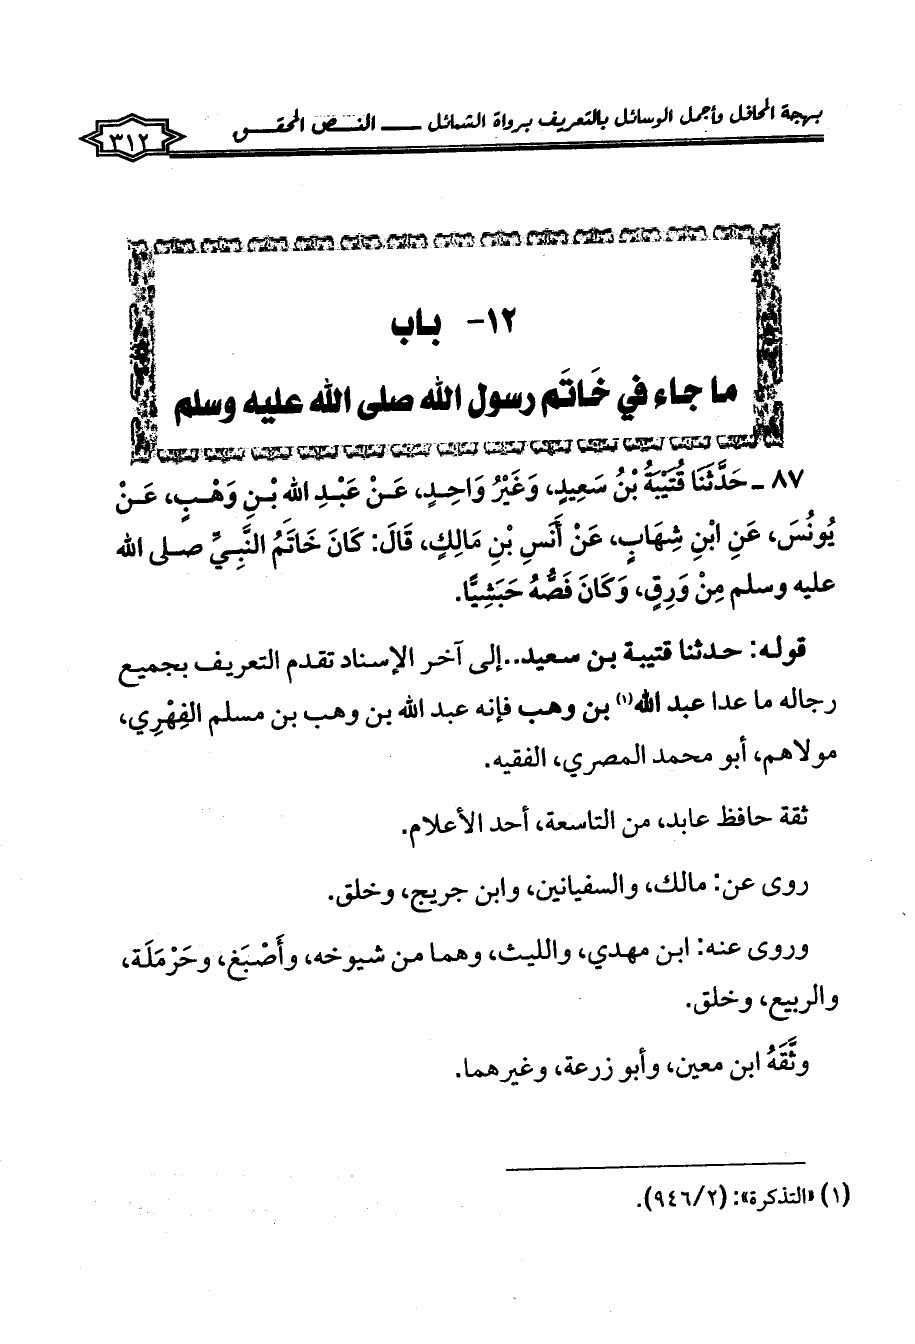 بهجة المحافل وأجمل الوسائل بالتعريف برواة الشمائل ــــ النص المحقق
٣١٢
١٢- باب
ما جاء في خَاتَم رسول الله صلى الله عليه وسلم
٨٧ ـ حَدَّثَنَا قُتَيْبَةُ بْنُ سَعِيدٍ، وَغَيْرُ وَاحِدٍ، عَنْ عَبْدِ الله بْنِ وَهْبٍ، عَنْ
يُونُسَ، عَنِ ابْنِ شِهَابٍ، عَنْ أَنَسِ بْنِ مَالِكٍ، قَالَ: كَانَ خَاتَمُ النَّبِيِّ صلى الله
عليه وسلم مِنْ وَرِقٍ، وَكَانَ فَصُّهُ حَبَشِيًّا.
قوله: حدثنا قتيبة بن سعيد..إلى آخر الإسناد تقدم التعريف بجميع
رجاله ما عدا عبد الله(١) بن وهب فإنه عبد الله بن وهب بن مسلم الفِهْرِي،
مولاهم، أبو محمد المصري، الفقيه.
ثقة حافظ عابد، من التاسعة، أحد الأعلام.
روى عن: مالك، والسفيانين، وابن جريج، وخلق.
وروى عنه: ابن مهدي، والليث، وهما من شيوخه، وأَصْبَغ، وحَرْمَلَة،
والربيع، وخلق.
وثَّقَهُ ابن معين، وأبو زرعة، وغيرهما.
(١) «التذكرة»: (٩٤٦/٢).